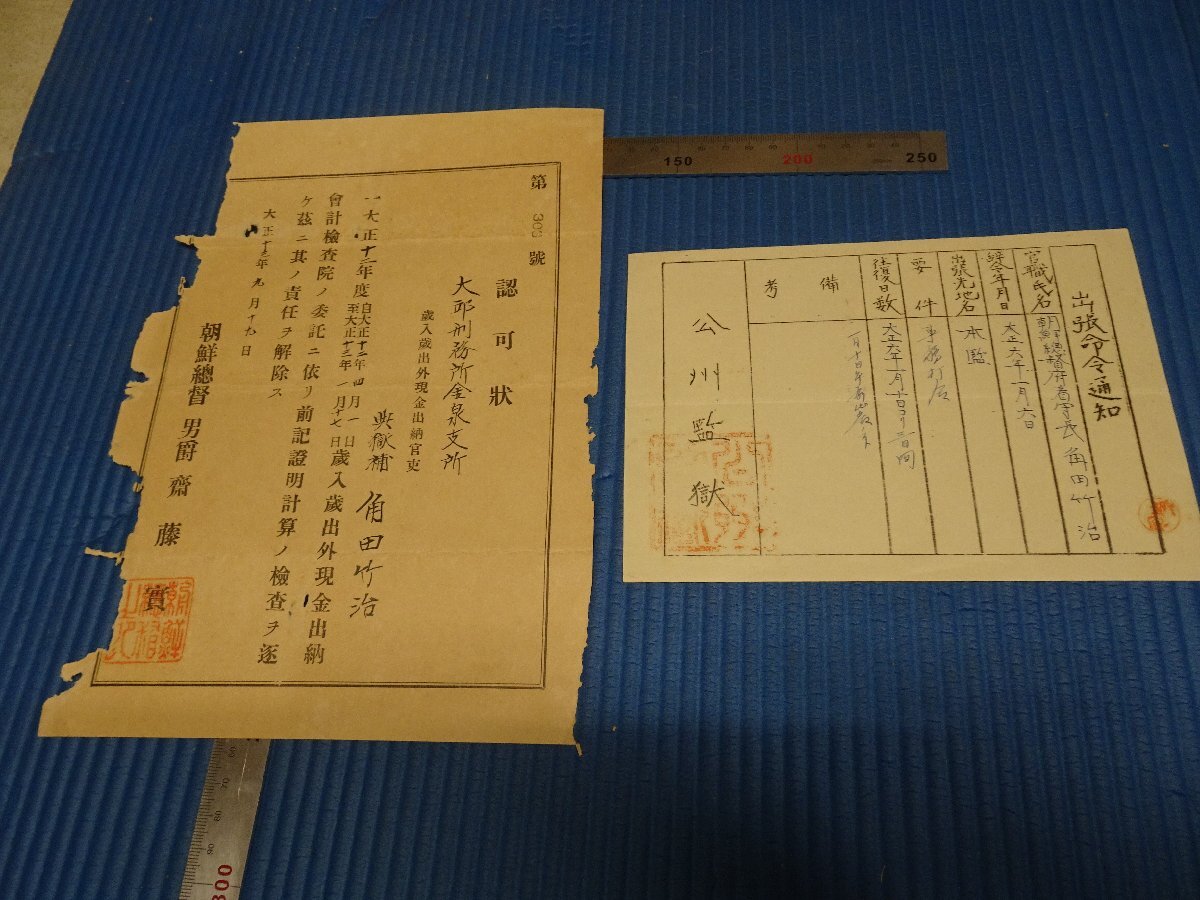 第 303 號
認可狀
大邱刑務所金泉支所
歲入歲出外現金出納官吏
典獄補 角田竹治
一大正十二年度自大正十二年四月一日至大正十三年一月十七日歲入歲出外現金出納
會計檢查院ノ委託ニ依リ前記證明計算ノ檢查ヲ逐
ケ茲ニ其ノ責任ヲ解除ス
大正十三年九月十九日
朝鮮總督 男爵 齋藤實
出張命令通知
官職氏名
朝鮮總督府看守長 角田竹治
辞令年月日
大正六年一月六日
出張先地名
本監
要件
事務打合
往復日数
大正六年一月十日ヨリ三日間
備考
公州監獄
150
200
250
300